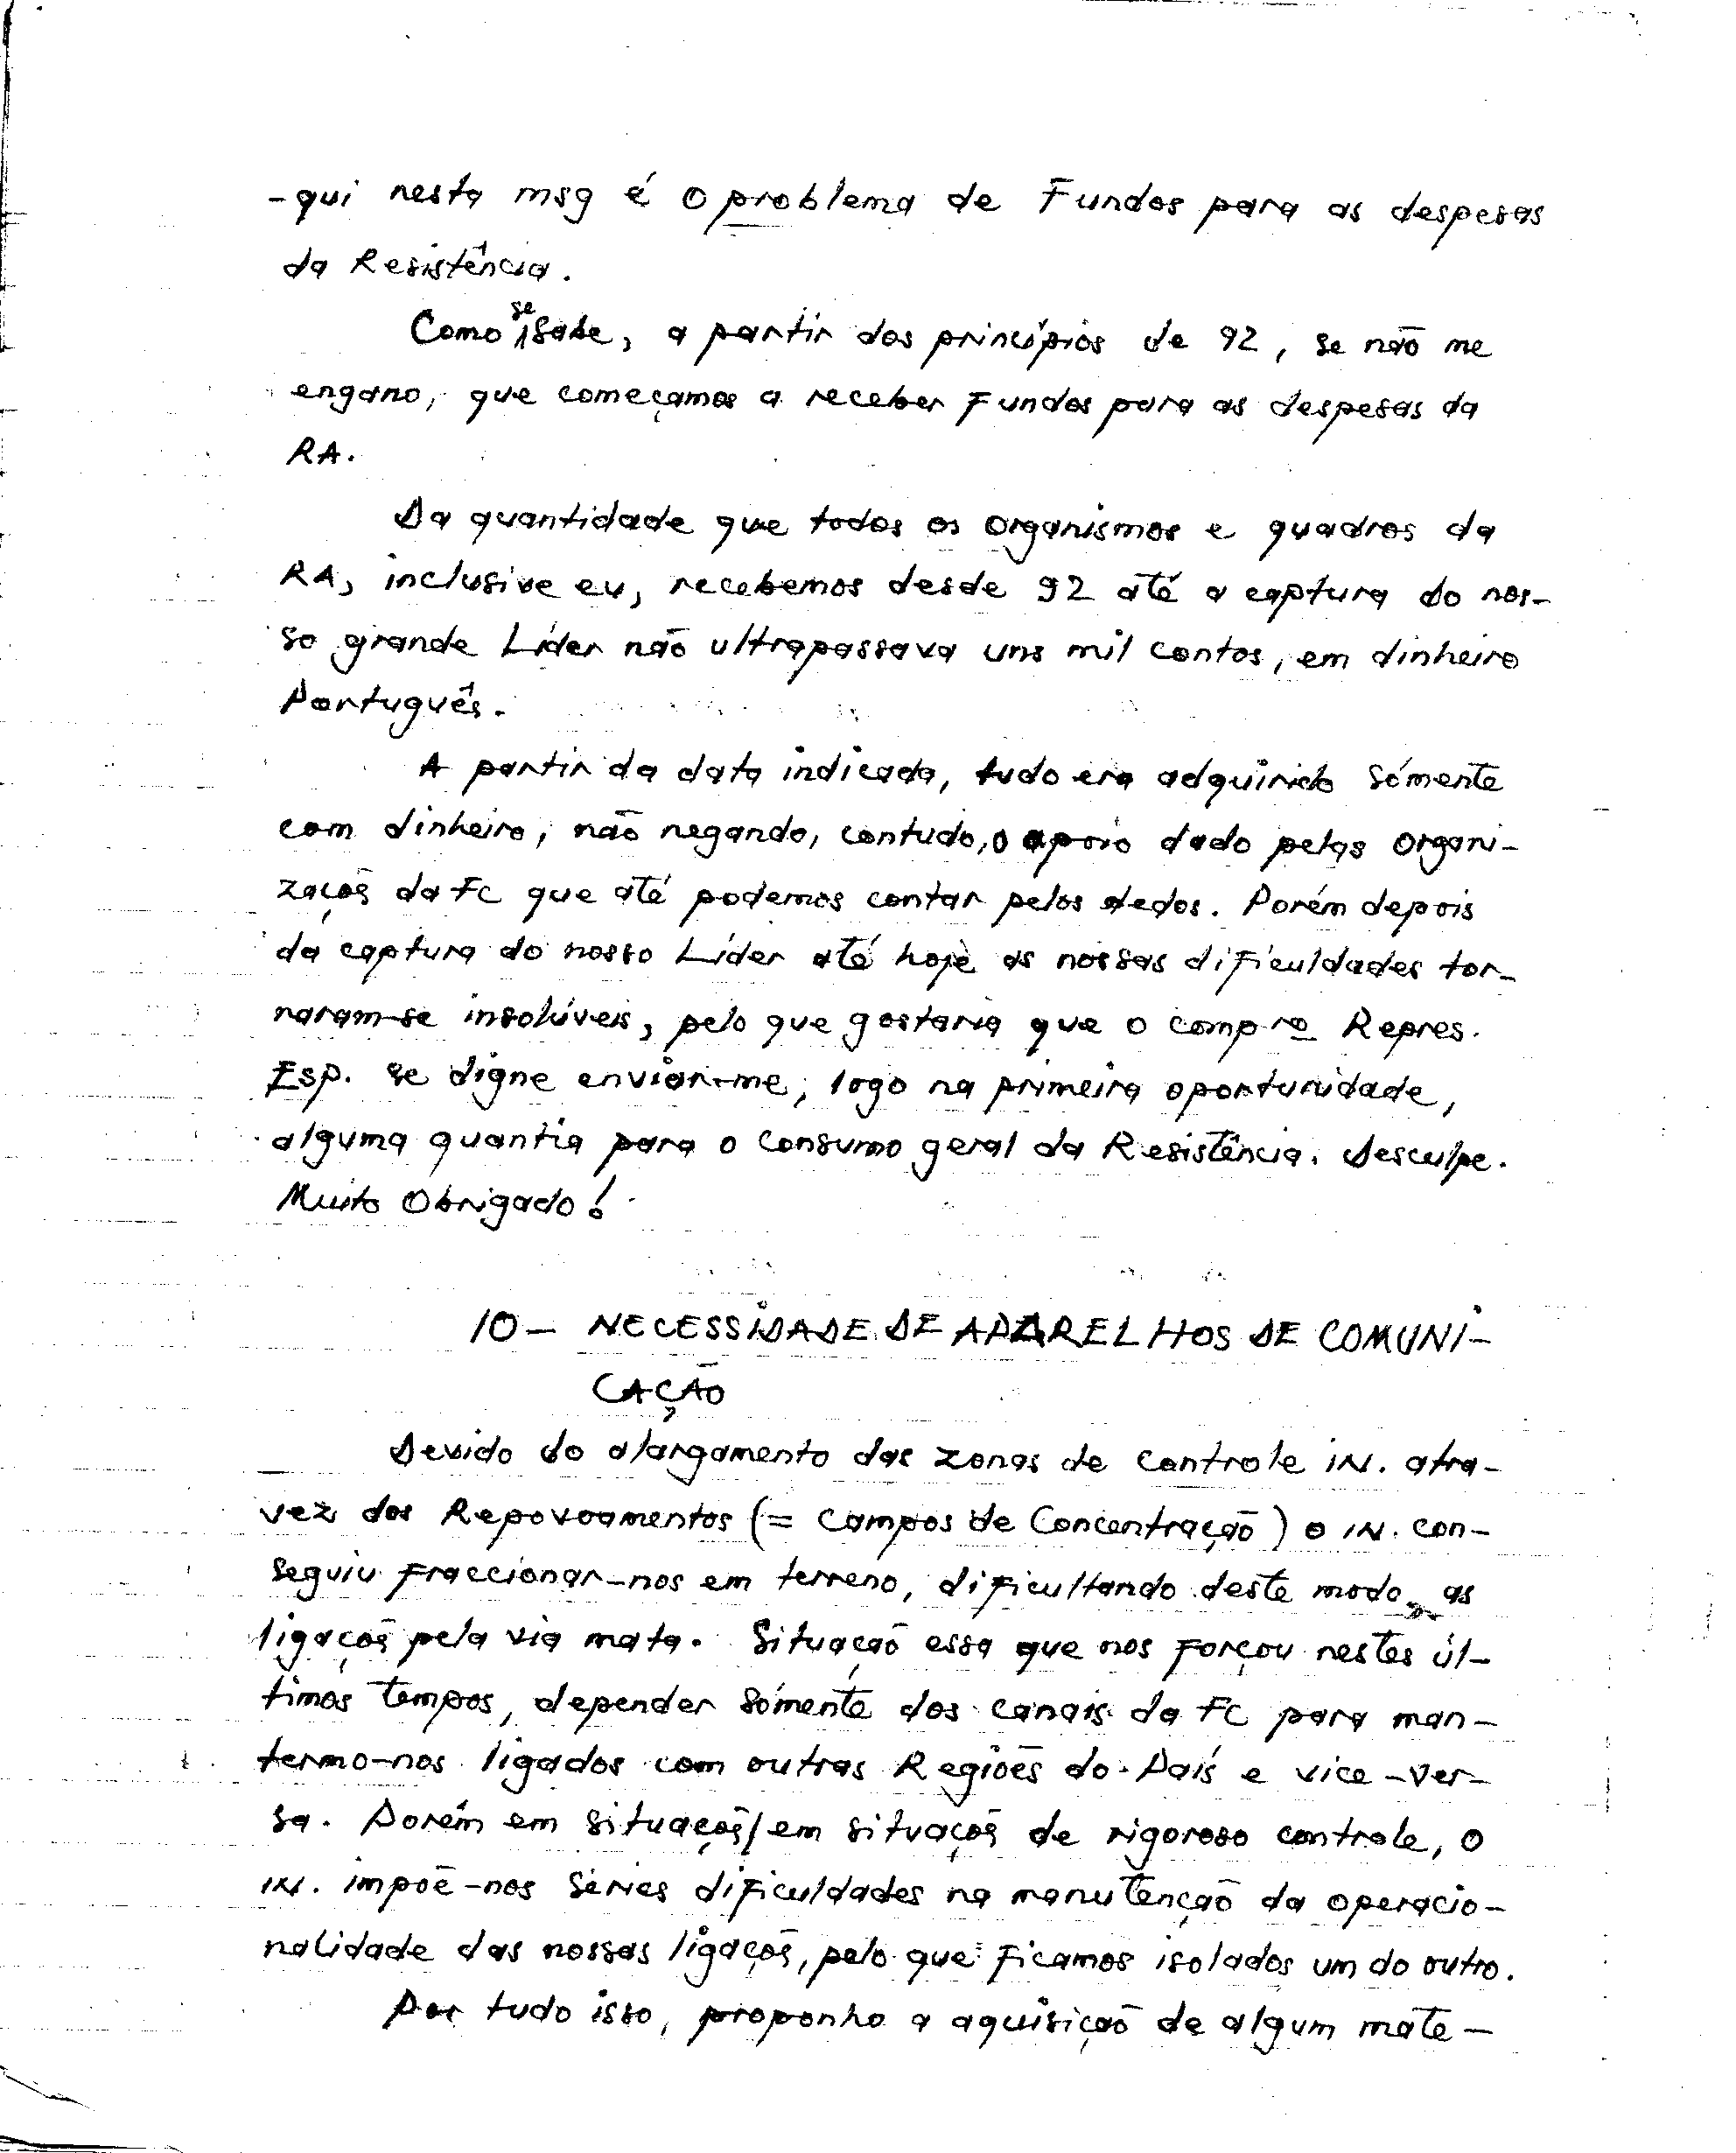 -qui nesta msg é o problema de Fundos para as despesas
da Resistência.
Como se sabe, a partir dos princípios de 92, se não me
engano, que começamos a receber Fundos para as despesas da
RA.
Da quantidade que todos os organismos e quadros da
RA, inclusive eu, recebemos desde 92 até a captura do nos-
so grande Líder não ultrapassava uns mil contos, em dinheiro
Português.
A partir da data indicada, tudo era adquirido sómente
com dinheiro, não negando, contudo, o apoio dado pelas organi-
zaçõs da FC que até podemos contar pelos dedos. Porém depois
da captura do nosso Líder até hoje as nossas dificuldades tor-
naram-se insolúveis, pelo que gostaria que o compro Repres.
Esp. se digne enviar-me, logo na primeira oportunidade,
alguma quantia para o consumo geral da Resistência. Desculpe.
Muito Obrigado!
10- NECESSIDADE DE APARELHOS DE COMUNI-
CAÇÃO
Devido do alargamento das zonas de controle iN. atra-
vez dos Repovoamentos (= Campos de Concentração) o iN. con-
seguiu fraccionar-nos em terreno, dificultando deste modo, as
ligaçõs pela via mata. Situação essa que nos forçou nestes úl-
timos tempos, depender sómente dos canais da FC para man-
termo-nos ligados com outras Regiões do País e vice-ver-
sa. Porém em situaçõs/em situaçõs de rigoroso controle, o
iN. impõe-nos séries dificuldades na manutenção da operacio-
nalidade das nossas ligaçõs, pelo que ficamos isolados um do outro.
Por tudo isso, proponho a aquisição de algum mate-